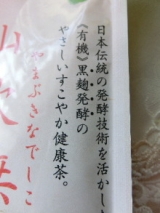 日本伝統の発酵技術を活かし
《有機》黒麹発酵の
やさしいすこやか健康茶。
やまぶきなでしこ